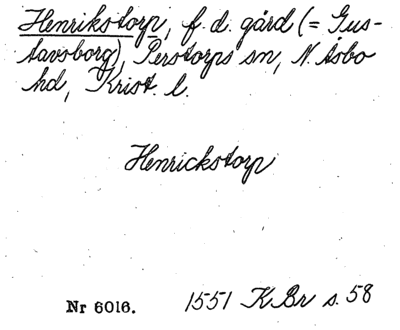 Henrikstorp, f. d. gård (= Gus-
tavsborg), Perstorps sn, N. Åsbo
hd, Krist. l.
Henrickstorp
Nr 6016. 1551 KBr s. 58